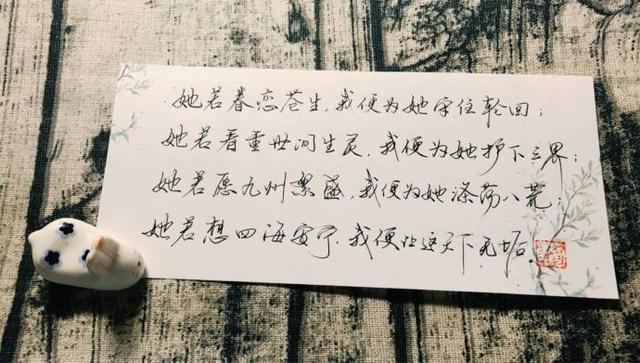 她若眷恋苍生，我便为她守住轮回；
她若看重世间生灵，我便为她护下三界；
她若愿九州繁盛，我便为她涤荡八荒；
她若想四海安宁，我便让这天下无垢。